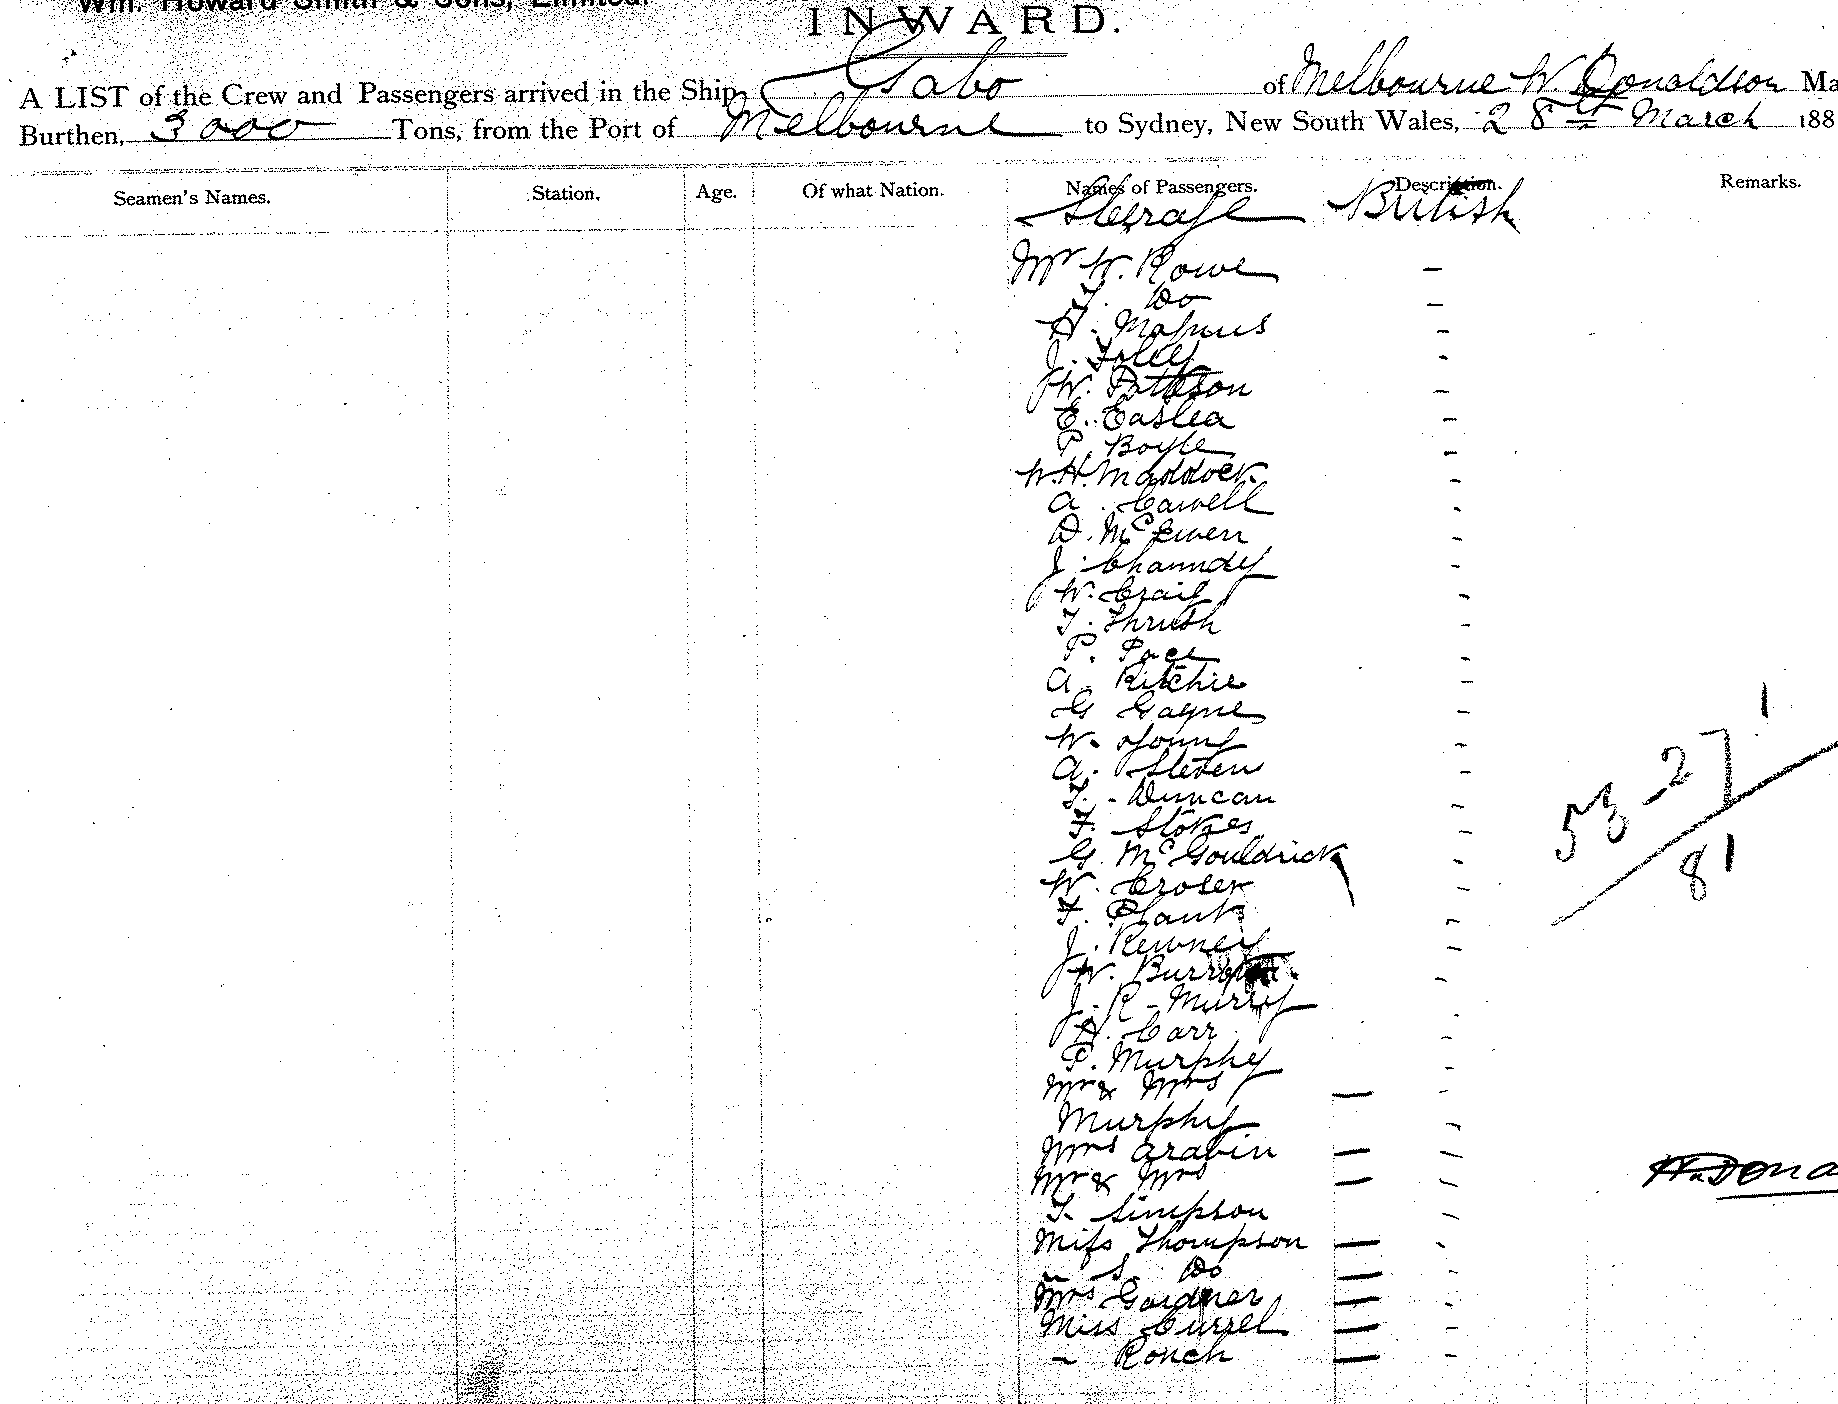 Wm. Howard Smith & Sons, Limited.
INWARD.
A LIST of the Crew and Passengers arrived in the Ship Gabo of Melbourne W. Donaldson Ma
Burthen, 3000 Tons, from the Port of Melbourne to Sydney, New South Wales, 28th March 188
Seamen's Names. Station. Age. Of what Nation. Names of Passengers. Description. Remarks.
Steerage British
Mr W. Rowe -
T. Do -
A. Magnus -
J. Foley -
W. Patteson -
E. Easlea -
P. Boyle -
W.H. Maddock -
A. Carvell -
D. McEwen -
J. Chaundy -
W. Craig -
T. Thrush -
P. Pace -
A. Ritchie -
G Gagne -
W. Young -
A. Steven -
T. Duncan -
F. Stokes -
G. McGouldrick -
W. Croser -
F. Plank -
J. Rewney -
W. -
J. R - Murry -
A. Carr -
P. Murphy -
Mr & Mrs — -
Murphy -
Mrs Arabin — -
Mr & Mrs — -
T. Simpson -
Miss Thompson — -
" S. Do — -
Mrs Gardner — -
Miss Currel — -
" Rouch — -
53 - 27 1
81
W. Dona